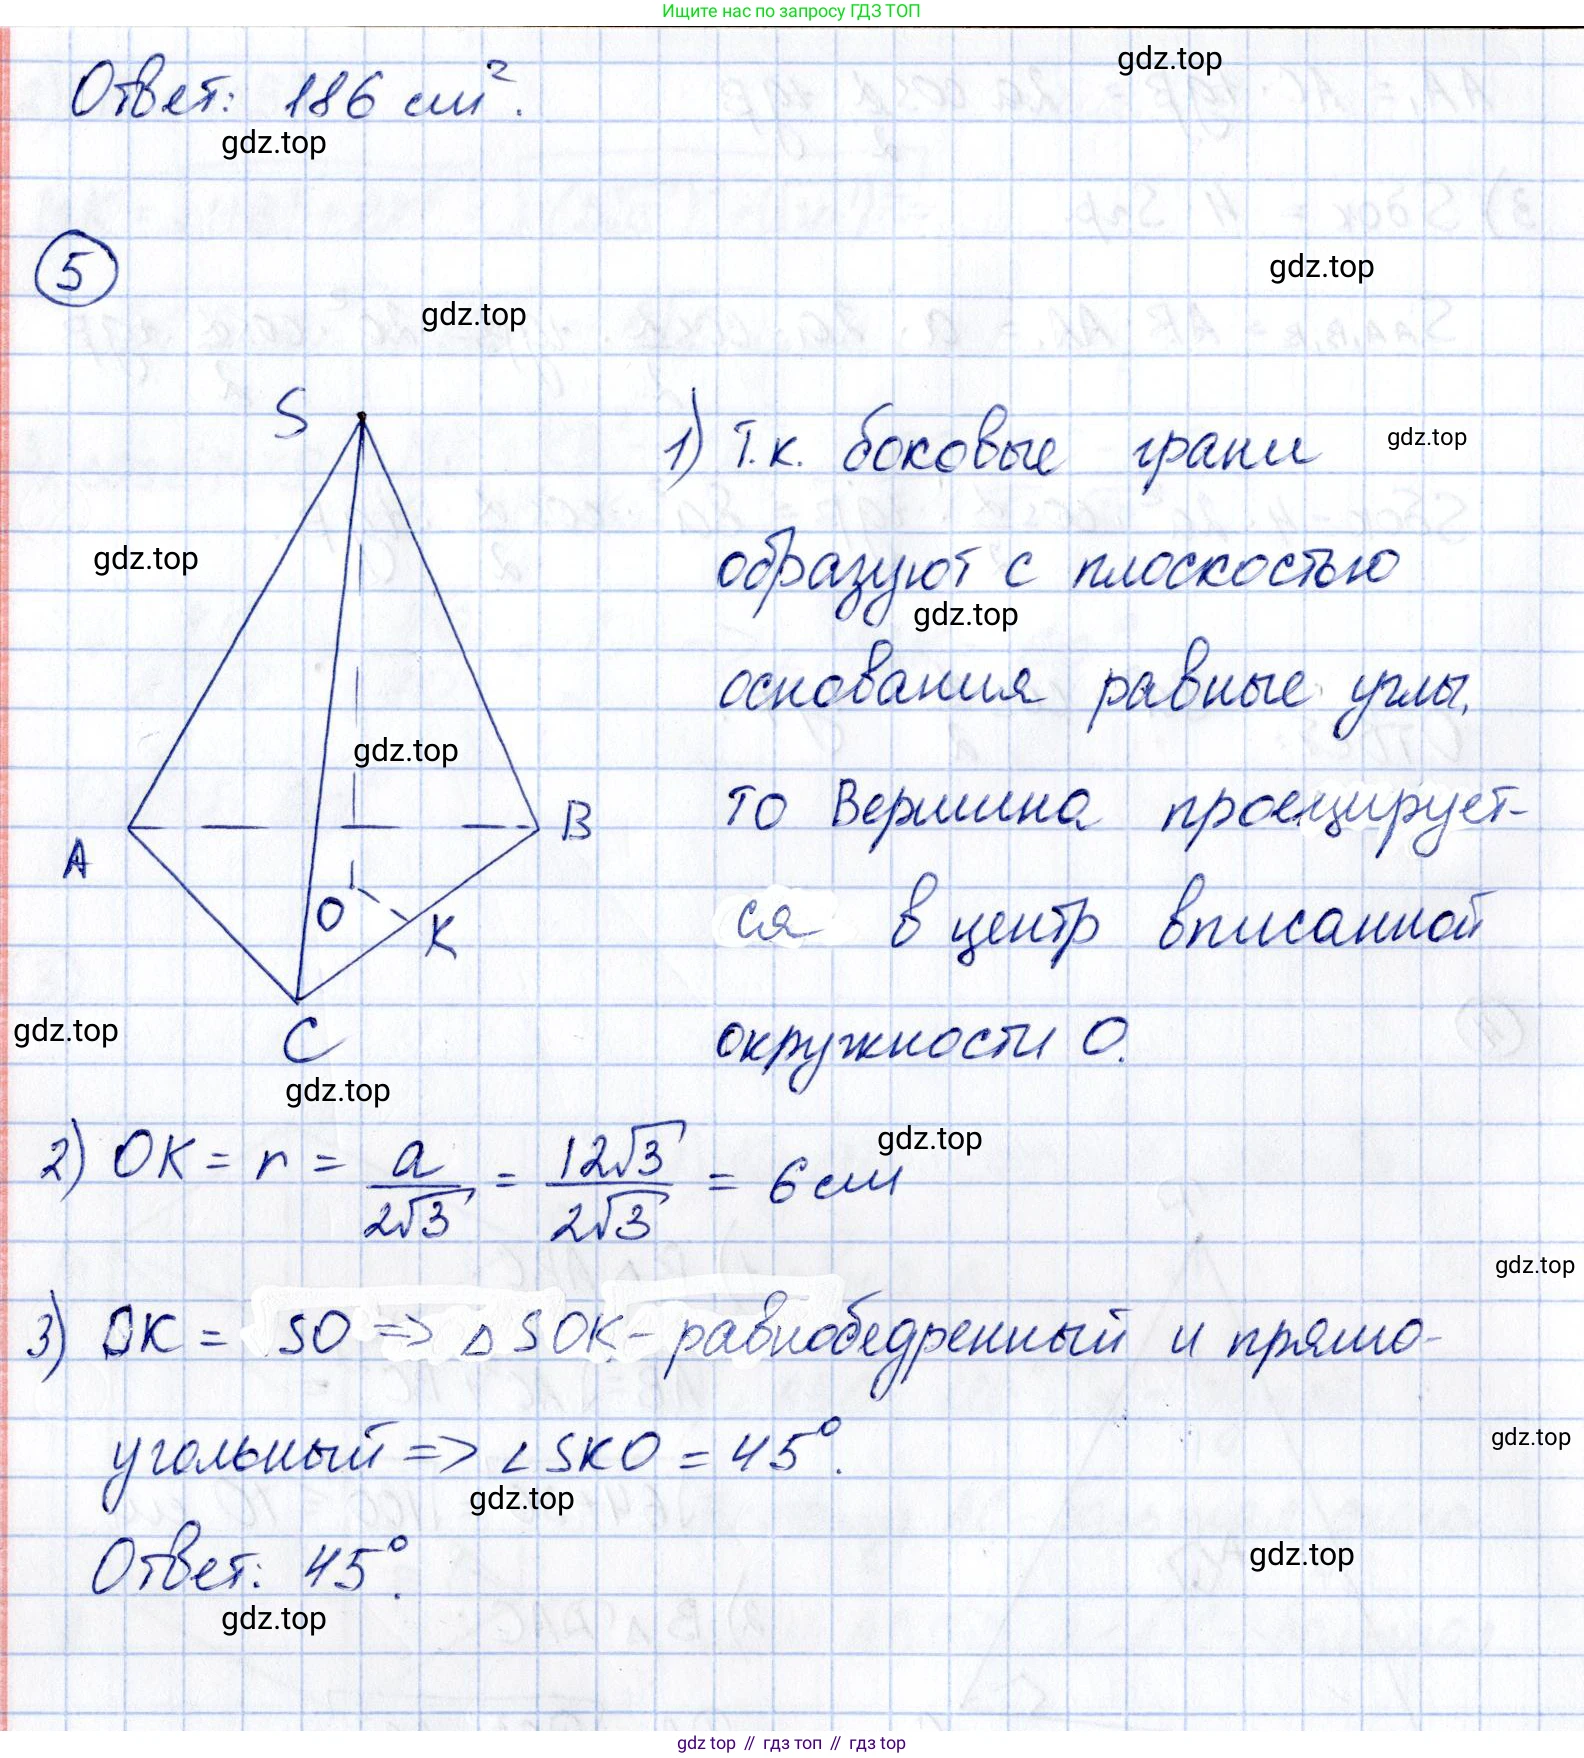 Ищите нас по запросу ГДЗ ТОП
gdz.top
Ответ: 186 см².
gdz.top
5
gdz.top
gdz.top
S
1) Т.к. боковые грани
gdz.top
gdz.top
образуют с плоскостью
gdz.top
основания равные углы,
gdz.top
то вершина проецирует-
A
B
ся в центр вписанной
O
K
gdz.top
C
окружности O.
gdz.top
gdz.top
2) OK = r = a/(2√3) = 12√3/(2√3) = 6 см
gdz.top
3) OK = SO => △SOK - равнобедренный и прямо-
угольный => ∠SKO = 45°.
gdz.top
gdz.top
Ответ: 45°.
gdz.top
gdz.top
gdz top // гдз топ // гдз top